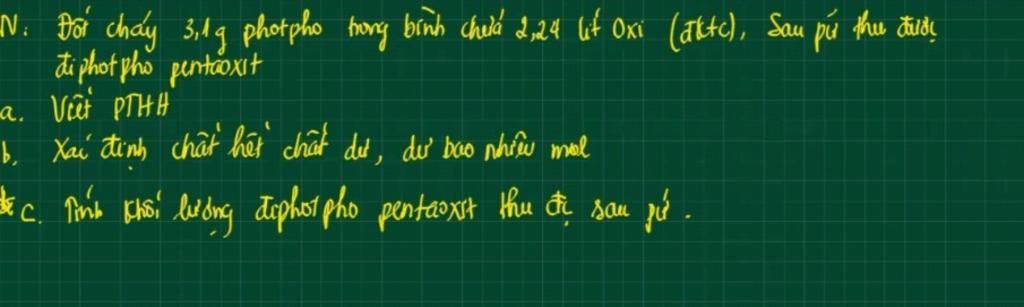 N. Đốt cháy 3,1g photpho trong bình chứa 2,24 lít Oxi (đktc), Sau pứ thu được
điphotpho pentaoxit
a. Viết PTHH
b, Xác định chất hết chất dư, dư bao nhiêu mol
c. Tính khối lượng điphotpho pentaoxit thu đc sau pứ.